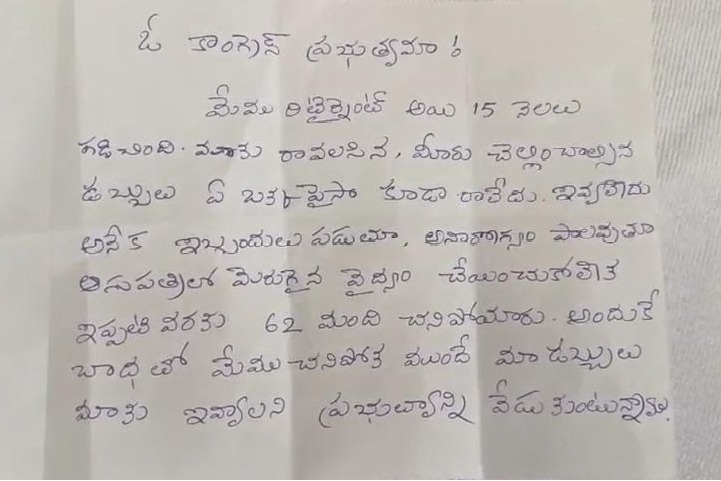 ఓ కాంగ్రెస్ ప్రభుత్వమా !
మేము రిటైర్మెంట్ అయి 15 నెలలు
గడిచింది. మాకు రావలసిన, మీరు చెల్లించాల్సిన
డబ్బులు ఏ ఒక్క పైసా కూడా రాలేదు. ఇవ్వలేదు
అనేక ఇబ్బందులు పడుతూ, అనారోగ్యం పాలవుతూ
ఆసుపత్రిలో మెరుగైన వైద్యం చేయించుకోలేక
ఇప్పటి వరకు 62 మంది చనిపోయారు. అందుకే
బాధతో మేము చనిపోక ముందే మా డబ్బులు
మాకు ఇవ్వాలని ప్రభుత్వాన్ని వేడుకుంటున్నాము.